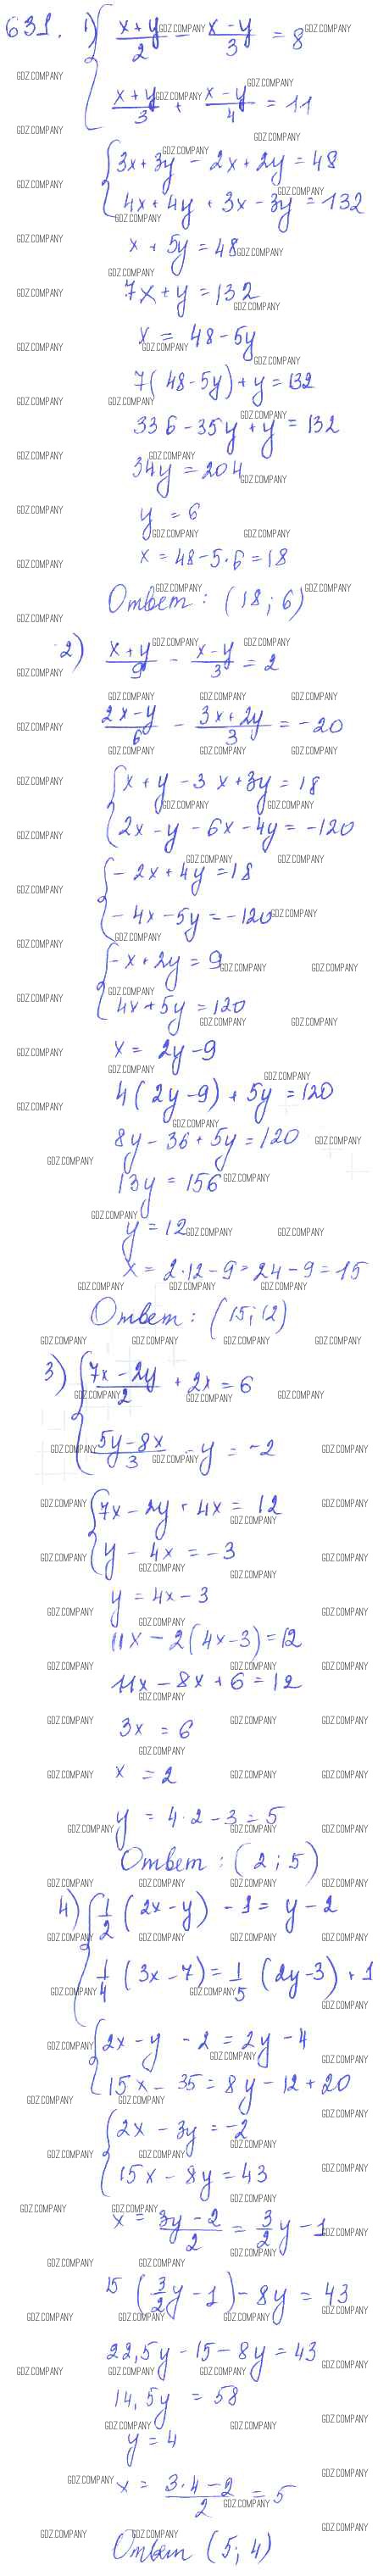 631. 1) { (x+y)/2 - (x-y)/3 = 8
(x+y)/3 + (x-y)/4 = 11
{ 3x+3y - 2x+2y = 48
4x+4y + 3x-3y = 132
x + 5y = 48
7x+y = 132
x = 48-5y
7(48-5y)+y = 132
336-35y+y = 132
34y = 204
y = 6
x = 48-5·6 = 18
Ответ: (18; 6)
2) (x+y)/9 - (x-y)/3 = 2
(2x-y)/6 - (3x+2y)/3 = -20
{ x+y-3x+3y = 18
2x-y-6x-4y = -120
{ -2x+4y = 18
-4x-5y = -120
{ -x+2y = 9
4x+5y = 120
x = 2y-9
4(2y-9)+5y = 120
8y-36+5y = 120
13y = 156
y = 12
x = 2·12-9 = 24-9 = 15
Ответ: (15; 12)
3) { (7x-2y)/2 + 2x = 6
(5y-8x)/3 - y = -2
{ 7x-2y+4x = 12
y-4x = -3
y = 4x-3
11x-2(4x-3) = 12
11x-8x+6 = 12
3x = 6
x = 2
y = 4·2-3 = 5
Ответ: (2; 5)
4) { 1/2 (2x-y) - 1 = y-2
1/4 (3x-7) = 1/5 (2y-3) + 1
{ 2x-y-2 = 2y-4
15x-35 = 8y-12+20
{ 2x-3y = -2
15x-8y = 43
x = (3y-2)/2 = 3/2 y - 1
15 (3/2 y - 1) - 8y = 43
22,5y-15-8y = 43
14,5y = 58
y = 4
x = (3·4-2)/2 = 5
Ответ (5; 4)
GDZ.COMPANY